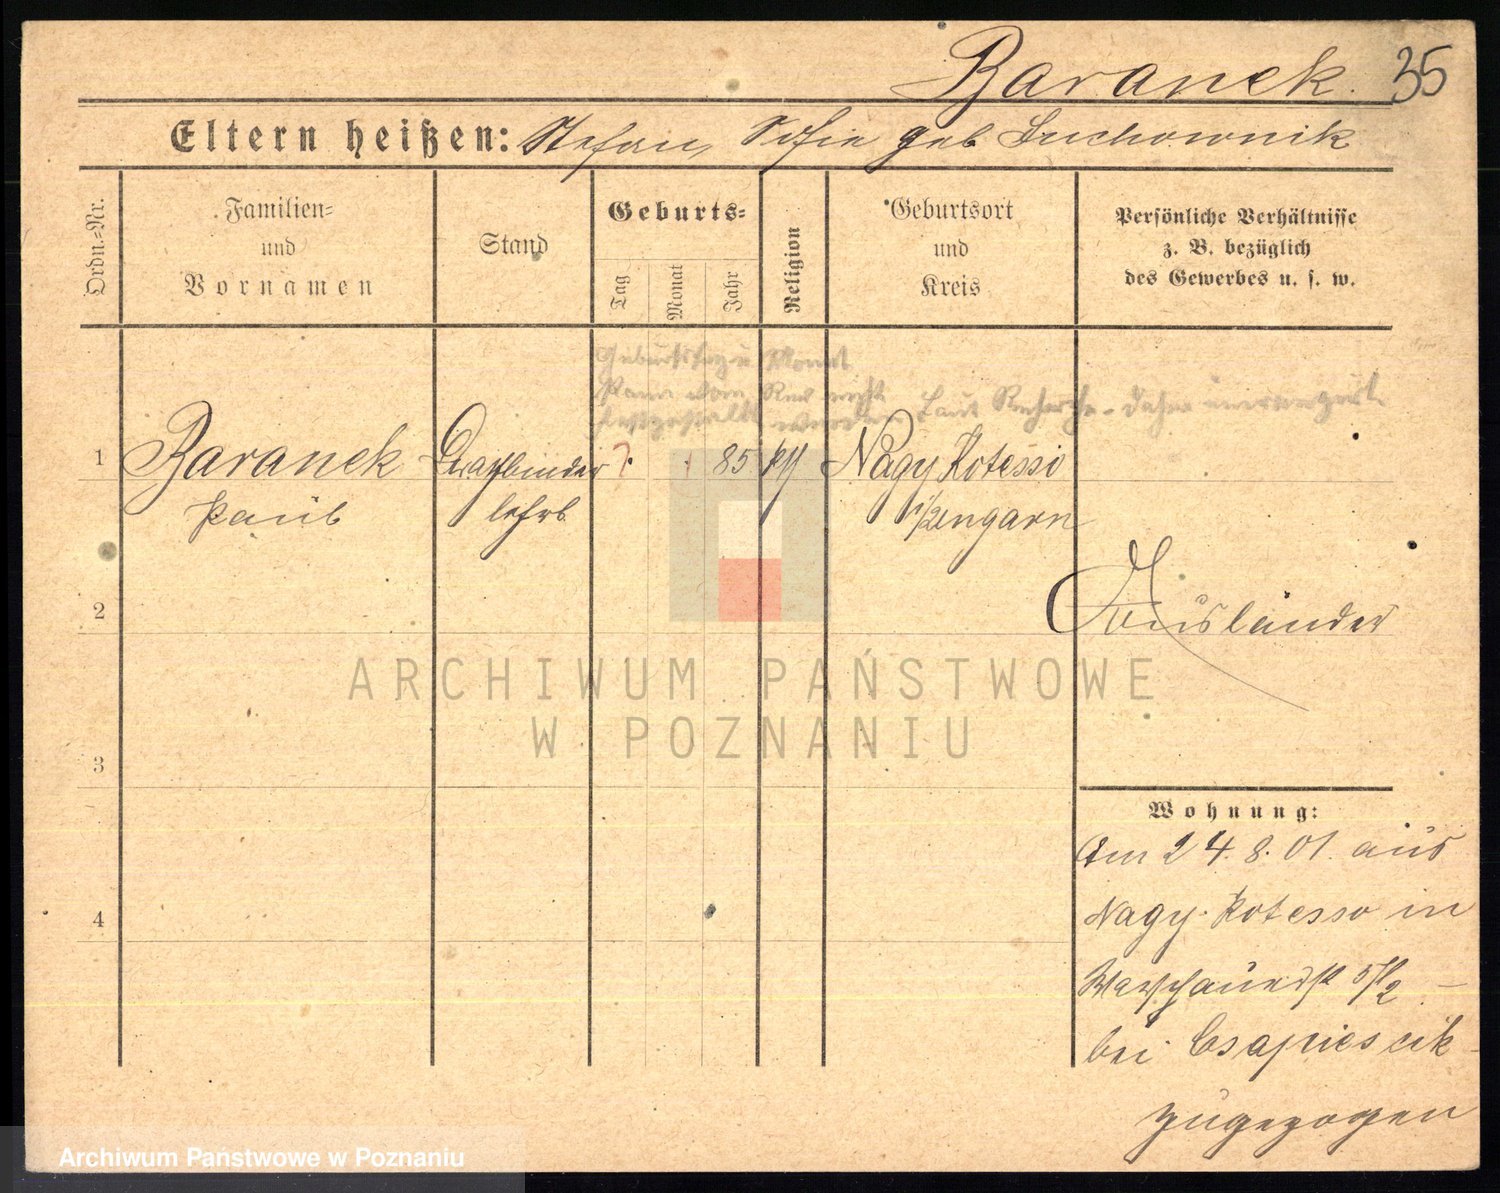 Baranek. 35
Eltern heißen: Stefan, Sofie geb Suchownik
Ordn.-Nr.
Familien-
und
Vornamen
Stand
Geburts-
Tag
Monat
Jahr
Religion
Geburtsort
und
Kreis
Persönliche Verhältnisse
z. B. bezüglich
des Gewerbes u. s. w.
Geburtstag u Monat
kann vom Rev nicht
festgestellt werden. Laut Recherche
1 Baranek Drahtbinder ? 85 kth Nagy Kotesso
Paul lehrl. i/Ungarn
2 Ausländer
ARCHIWUM PAŃSTWOWE
W POZNANIU
3
Wohnung:
Am 24.8.01. aus
4 Nagy-Kotesso in
Warschauerstr
bei Csapiescik
zugezogen
Archiwum Państwowe w Poznaniu